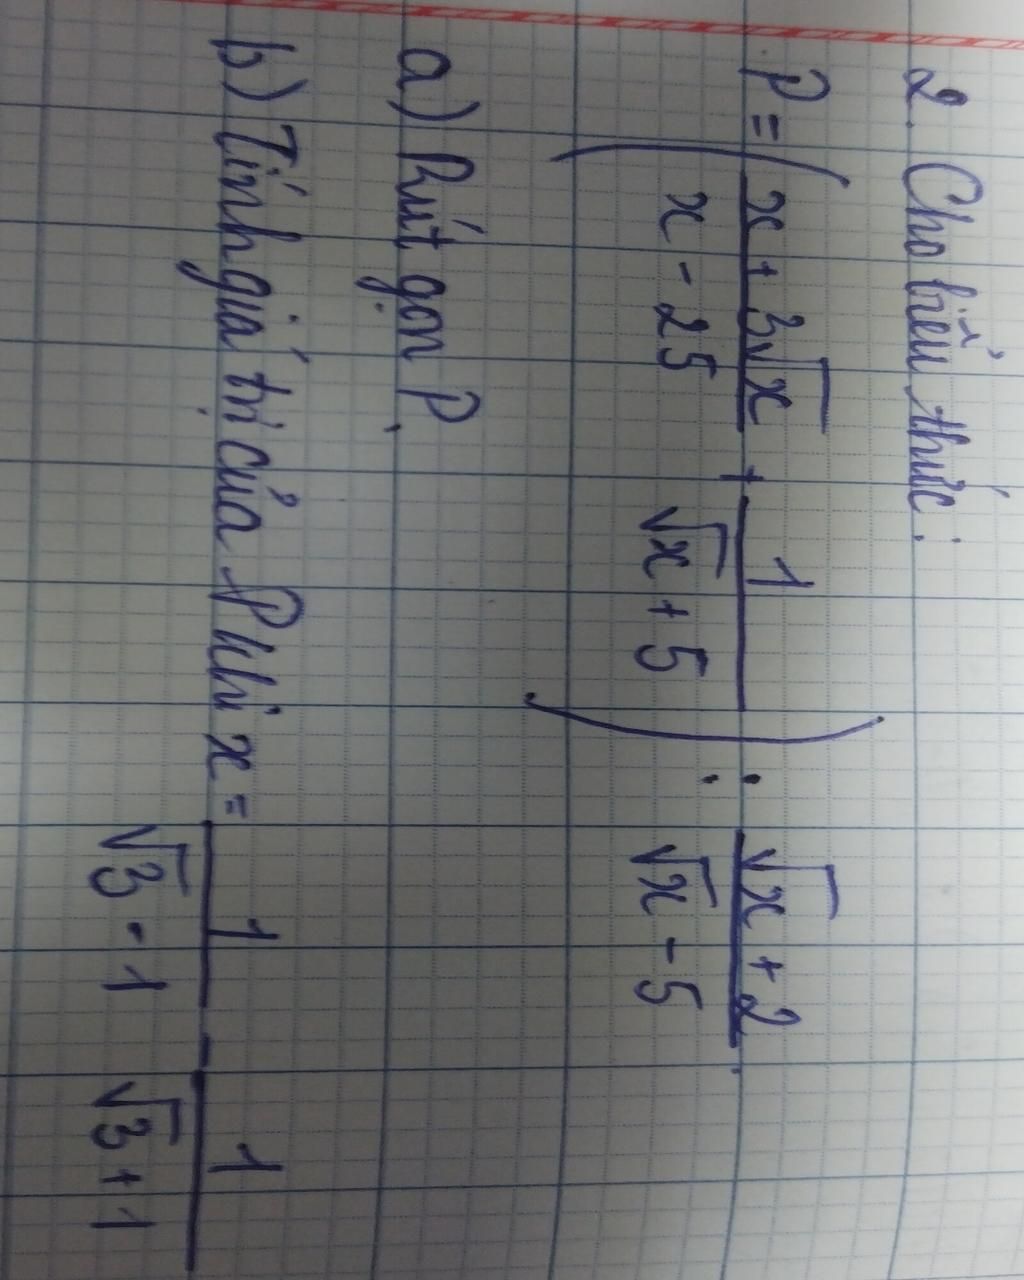 2. Cho biểu thức:
P = ( x + 3√x / x - 25 + 1 / √x + 5 ) : √x + 2 / √x - 5 .
a) Rút gọn P.
b) Tính giá trị của P khi x = 1 / √3 - 1 - 1 / √3 + 1